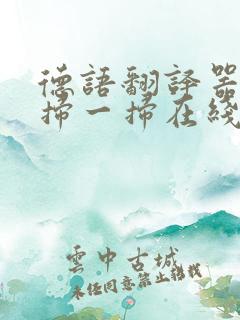 德語翻譯器
掃一掃在綫
雲中古城
未经同意禁止搬我